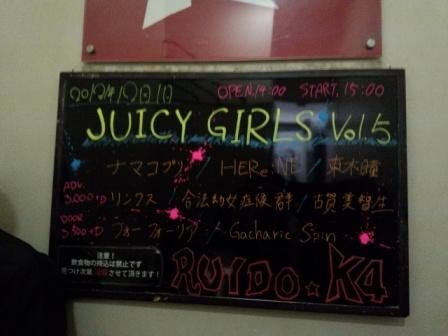 2012年12月1日 OPEN.14:00 START.15:00
JUICY GIRLS Vol.5
ナマコプリ / HERe:NE / 東木瞳
ADV. 3.000+D リンクス / 合法幼女症候群 / 古賀美智生
DOOR 3.500+D フォーフォーリア / Gacharic Spin
注意!
飲食物の持込は禁止です
見つけ次第 させて頂きます!
RUIDO★K4